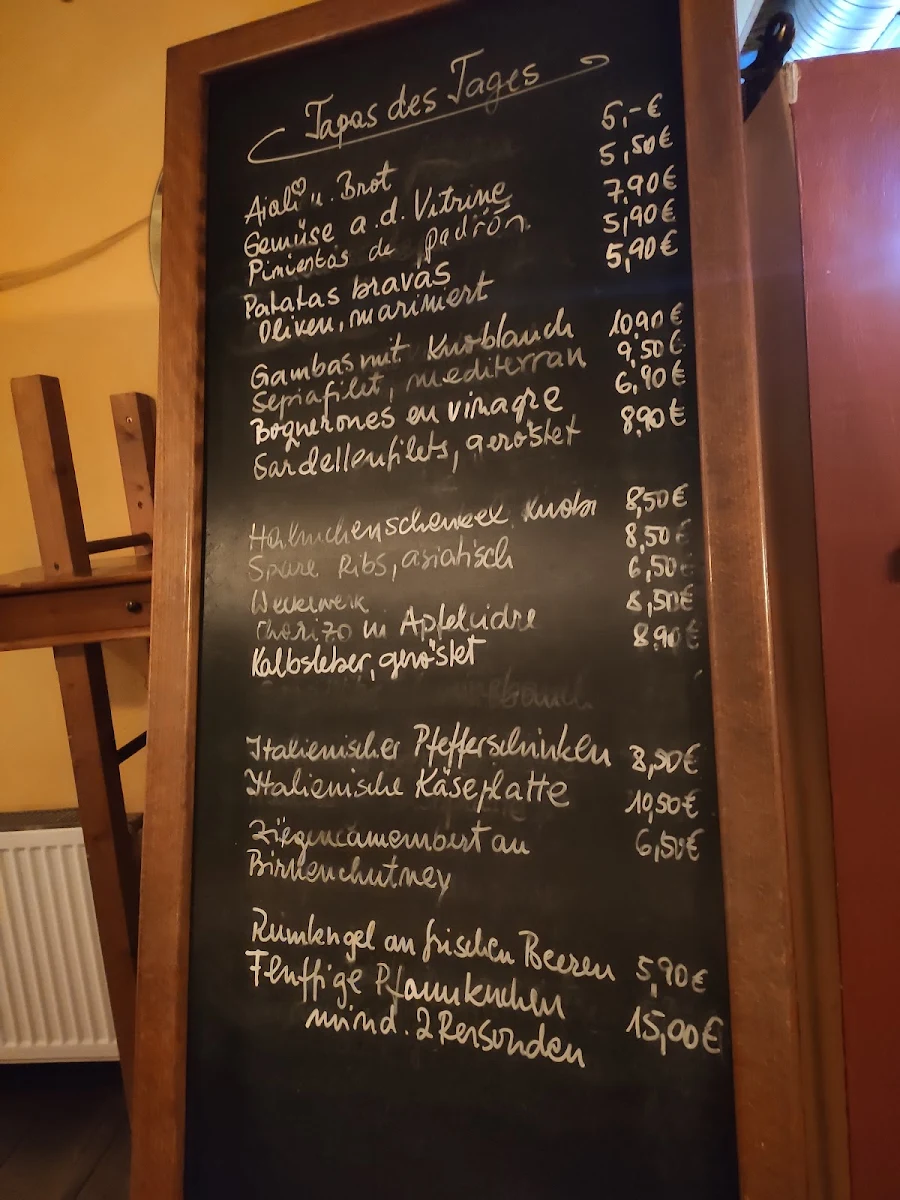 Tapas des Tages
Aiali u. Brot 5,-€
Gemüse a.d. Vitrine 5,50€
Pimientos de padrón. 7,90€
Patatas bravas 5,90€
Oliven, mariniert 5,90€
Gambas mit Knoblauch 10,90€
Sepiafilet, mediterran 9,50€
Boquerones en vinagre 6,90€
Sardellenfilets, geröstet 8,90€
Hähnchenschenkel Knobi 8,50€
Spare Ribs, asiatisch 8,50€
Weckewerk 6,50€
Chorizo in Apfelcidre 8,50€
Kalbsleber, geröstet 8,90€
Italienischer Pfefferschinken 8,50€
Italienische Käseplatte 10,50€
Ziegencamembert an 6,50€
Birnenchutney
Rumkugel an frischen Beeren 5,90€
Fluffige Pfannkuchen
mind. 2 Personen 15,00€